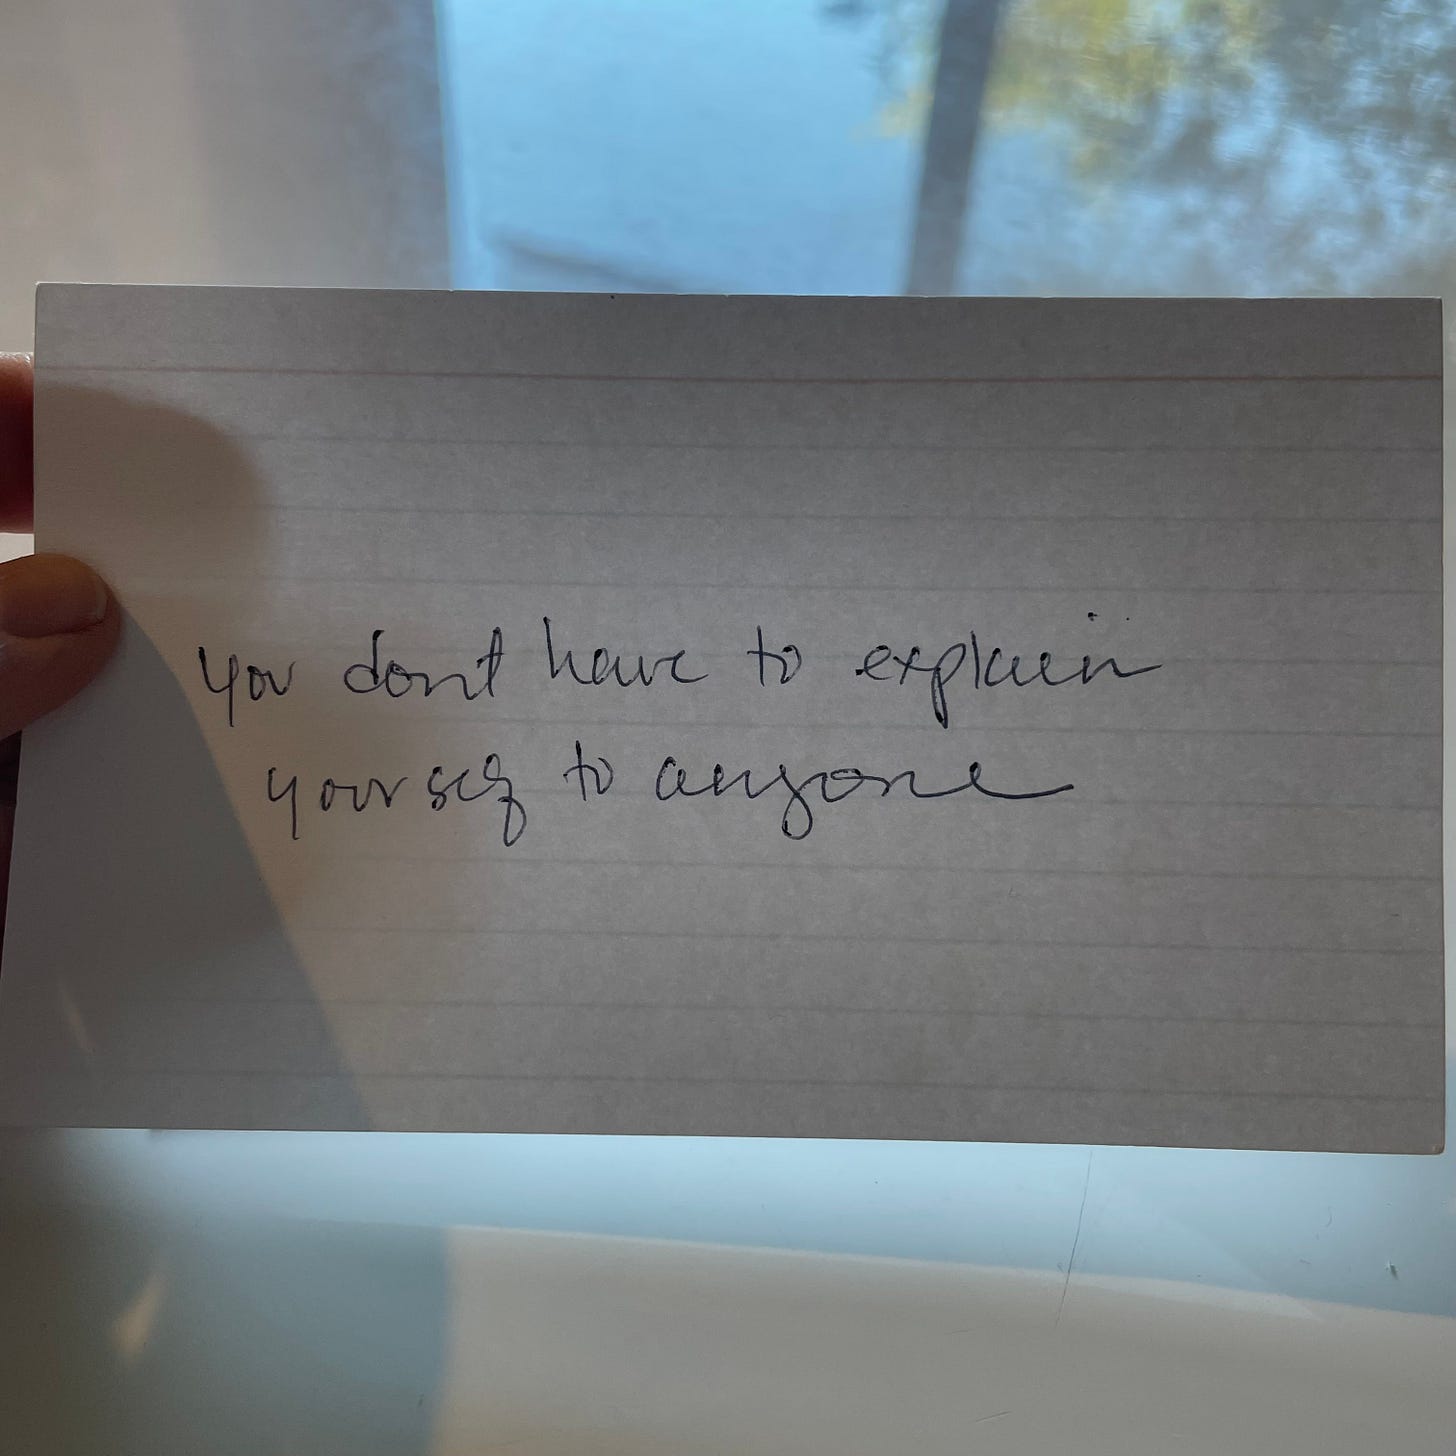 you don't have to explain
yourself to anyone